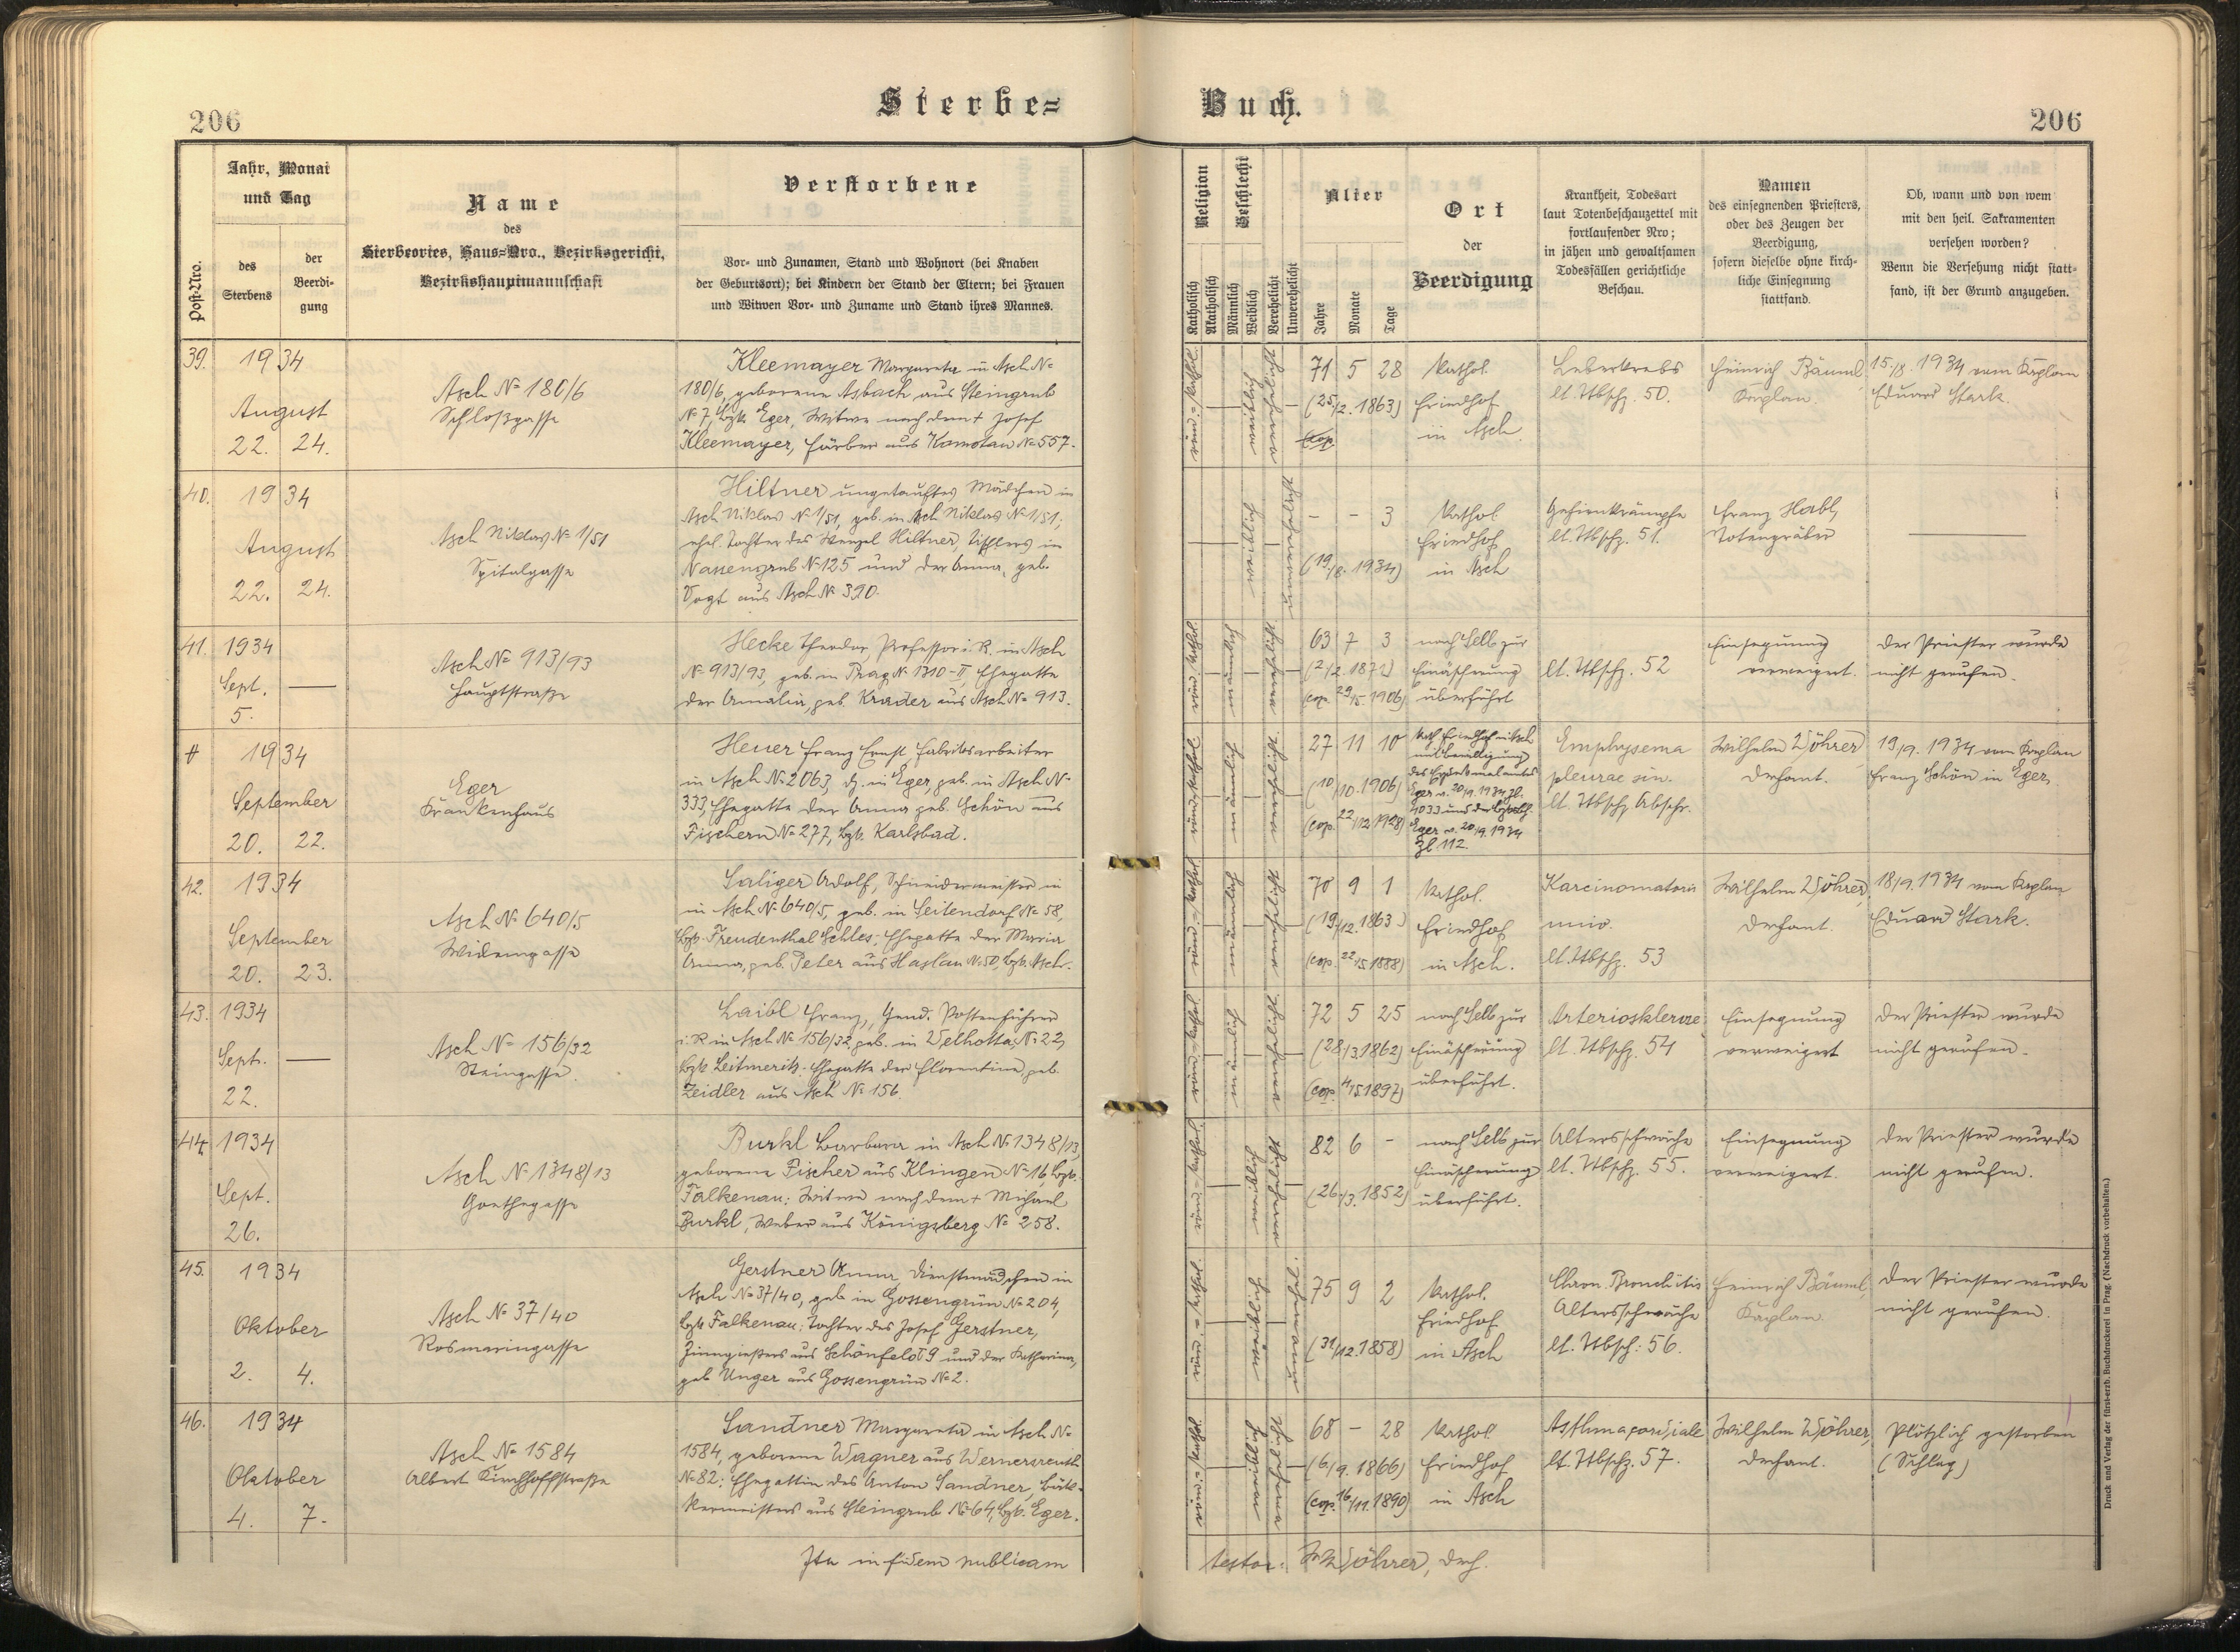 206
Sterbe=
Buch.
206
Post-Nro.
Jahr, Monat
und Tag
des
Sterbens
der
Beerdi-
gung
Name
des
Sterbeortes, Haus=Nro., Bezirksgericht,
Bezirkshauptmannschaft
Verstorbene
Vor- und Zunamen, Stand und Wohnort (bei Knaben
der Geburtsort); bei Kindern der Stand der Eltern; bei Frauen
und Witwen Vor- und Zuname und Stand ihres Mannes.
Religion
Katholisch
Akatholisch
Geschlecht
Männlich
Weiblich
Verehelicht
Unverehelicht
Alter
Jahre
Monate
Tage
Ort
der
Beerdigung
Krankheit, Todesart
laut Totenbeschauzettel mit
fortlaufender Nro;
in jähen und gewaltsamen
Todesfällen gerichtliche
Beschau.
Namen
des einsegnenden Priesters,
oder des Zeugen der
Beerdigung,
sofern dieselbe ohne kirch-
liche Einsegnung
stattfand.
Ob, wann und von wem
mit den heil. Sakramenten
versehen worden?
Wenn die Versehung nicht statt-
fand, ist der Grund anzugeben.
39.
1934
August
22. 24.
Asch № 180/6
Schloßgasse
Kleemayer Margareta in Asch №
180/6, geborene Asbach aus Steingrub
№ 7, Bzk. Eger, Witwe nach dem + Josef
Kleemayer, Färber aus Komotau № 557.
röm.=kathol.
weiblich
verehelicht
71 5 28
(25/2. 1863)
cop.
Kathol.
Friedhof
in Asch.
Leberkrebs
lt. Ttbschz. 50.
Heinrich Bäuml,
Kaplan.
15./8. 1934 vom Kaplan
Eduard Stark.
40.
1934
August
22. 24.
Asch Niklas № 1/51
Spitalgasse
Hiltner ungetauftes Mädchen in
Asch Niklas № 1/51, geb. in Asch Niklas № 1/51;
ehel. Tochter des Wenzel Hiltner, Tischlers in
Nassengrub № 125 und der Anna, geb.
Vogt aus Asch № 390.
weiblich
unverehelicht
- - 3
(19./8. 1934)
Kathol.
Friedhof
in Asch
Gehirnkrämpfe
lt. Ttbschz. 51.
Franz Habl,
Totengräber
41.
1934
Sept.
5.
Asch № 913/93
Hauptstraße
Hecke Theodor Professor i. R. in Asch
№ 913/93, geb. in Prag № 1310-II, Ehegatte
der Amalia, geb. Krader aus Asch № 913.
röm. kathol.
männlich
verehelicht
63 7 3
(2/2. 1871)
(cop. 29/5. 1906)
nach Selb zur
Einäscherung
überführt
lt. Ttbschz. 52
Einsegnung
verweigert.
Der Priester wurde
nicht gerufen.
1934
September
20. 22.
Eger
Krankenhaus
Heuer Franz Ernst Fabriksarbeiter
in Asch № 2063, dz. in Eger, geb. in Asch №
333, Ehegatte der Anna geb. Schön aus
Fischern № 277, Bzk. Karlsbad.
röm.=kathol.
männlich
verehelicht
27 11 10
(10/10. 1906)
(cop. 22/12 1928)
Kath. Friedhof in Asch
mit Bewilligung
Eger v. 20/9. 1934 Zl.
4033 und der
Eger v. 20/9. 1934
Zl. 112.
Emphysema
pleurae sin.
lt. Ttbschz Abschr.
Wilhelm Wöhrer,
Dechant.
19/9. 1934 vom Kaplan
Franz Schön in Eger.
42.
1934
September
20. 23.
Asch № 640/5
Widemgasse
Saliger Adolf, Schneidermeister in
in Asch № 640/5, geb. in Seitendorf № 58,
Bzk. Freudenthal Schles.; Ehegatte der Maria
Anna, geb. Peter aus Haslau № 50, Bzk. Asch.
röm.=kathol.
männlich
verehelicht
70 9 1
(19/12. 1863)
(cop. 22/5 1888)
Kathol.
Friedhof
in Asch.
lt. Ttbschz. 53
Wilhelm Wöhrer,
Dechant.
18/9. 1934 vom Kaplan
Eduard Stark.
43.
1934
Sept.
22.
Asch № 156/32
Steingasse.
Laibl Franz, Gend. Postenführer
i. R. in Asch № 156/32, geb. in Welhotta № 22,
Bzk. Leitmeritz. Ehegatte der Florentine, geb.
Zeidler aus Asch № 156.
röm. kathol.
männlich
verehelicht
72 5 25
(28/3 1862)
(cop. 4/5 1897)
nach Selb zur
Einäscherung
überführt.
Arteriosklerose
lt. Ttbschz. 54
Einsegnung
verweigert
Der Priester wurde
nicht gerufen.
44.
1934
Sept.
26.
Asch № 1348/13
Goethegasse
Burkl Barbara in Asch № 1348/13,
geborene Fischer aus Klingen № 16, Bzk.
Falkenau; Witwe nach dem + Michael
Burkl, Weber aus Königsberg № 258.
röm.=kathol.
weiblich
verehelicht
82 6 -
(26./3. 1852)
nach Selb zur
Einäscherung
überführt.
Altersschwäche
lt. Ttbschz. 55.
Einsegnung
verweigert.
Der Priester wurde
nicht gerufen.
45.
1934
Oktober
2. 4.
Asch № 37/40
Rosmaringasse
Gerstner Anna, Dienstmädchen in
Asch № 37/40, geb. in Gossengrün № 204,
Bzk Falkenau; Tochter des Josef Gerstner,
Zinngießers aus Schönfeld 79 und der Katharina,
geb Unger aus Gossengrün № 2.
röm.=kathol.
weiblich
unverehel.
75 9 2
(31/12. 1858)
Kathol.
Friedhof
in Asch
Chron. Bronchitis
Altersschwäche
lt. Ttbsch: 56.
Heinrich Bäuml,
Kaplan.
Der Priester wurde
nicht gerufen.
46.
1934
Oktober
4. 7.
Asch № 1584
Albert Kirchhoffstraße
Sandner Margareta in Asch №
1584, geborene Wagner aus Wernersreuth
№ 82; Ehegattin des Anton Sandner, Bäk-
kermeisters aus Steingrub № 64, Bzk. Eger.
röm.=kathol.
weiblich
verehelicht
68 - 28
(6/9. 1866)
(cop. 16/11. 1890)
Kathol
Friedhof
in Asch
Asthma cordiale
lt. Ttbschz. 57.
Wilhelm Wöhrer,
Dechant.
Plötzlich gestorben
(Schlag)
Ita in fidem publicam
testor: W Wöhrer, Dech.
Druck und Verlag der fürst-erzb. Buchdruckerei in Prag. (Nachdruck vorbehalten.)